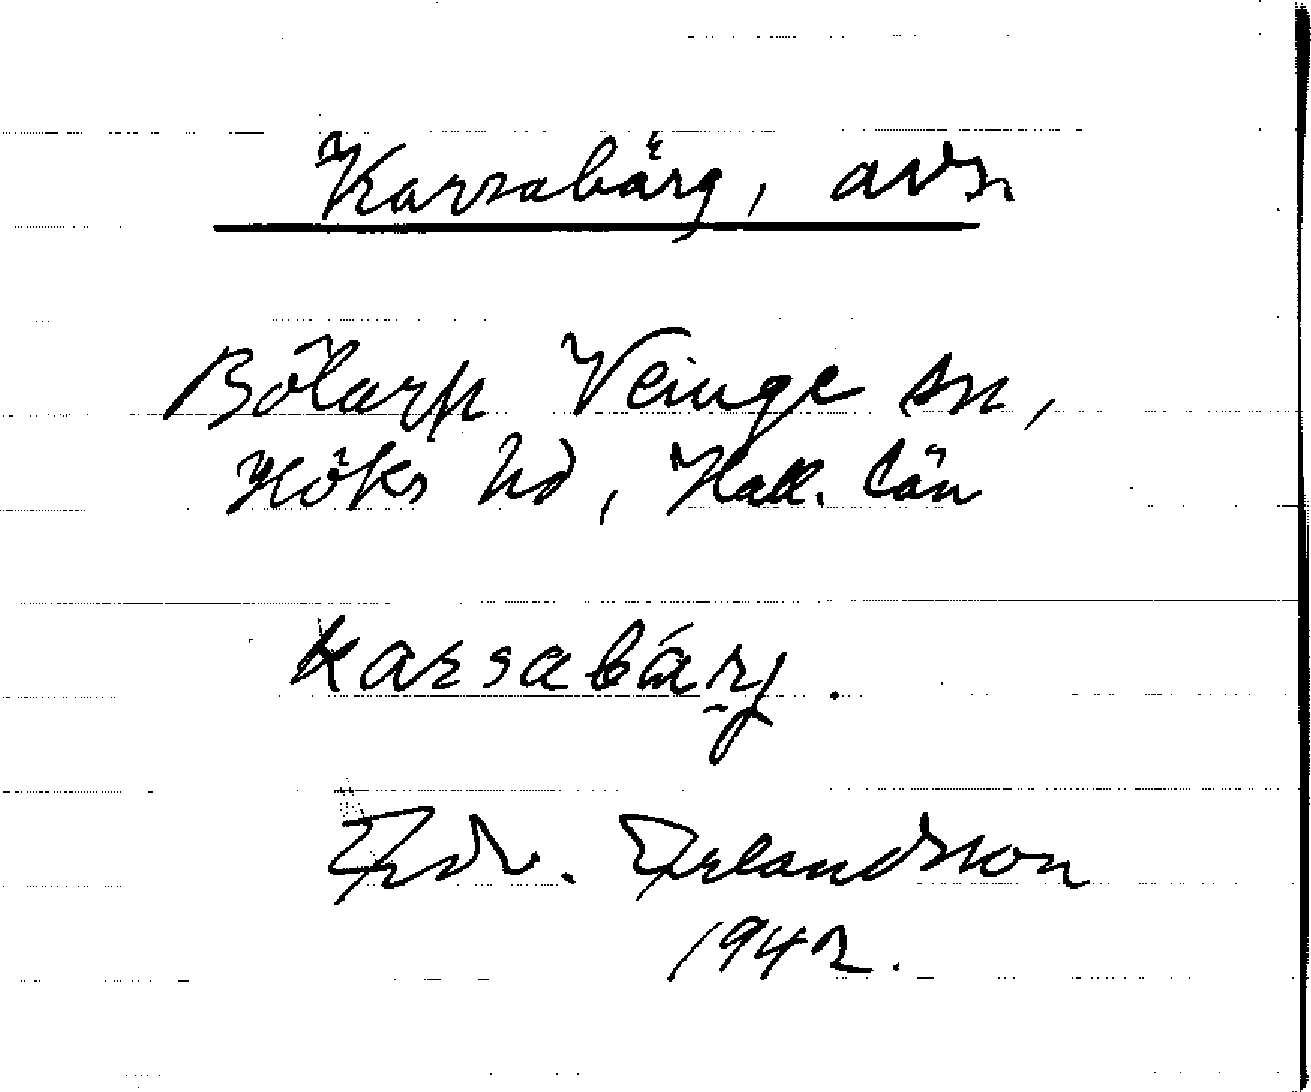 Karsabärg, avs.
Bölarp Veinge sn,
Höks hd, Hall. län
karsabärj.
Edv. Erlandsson
1942.